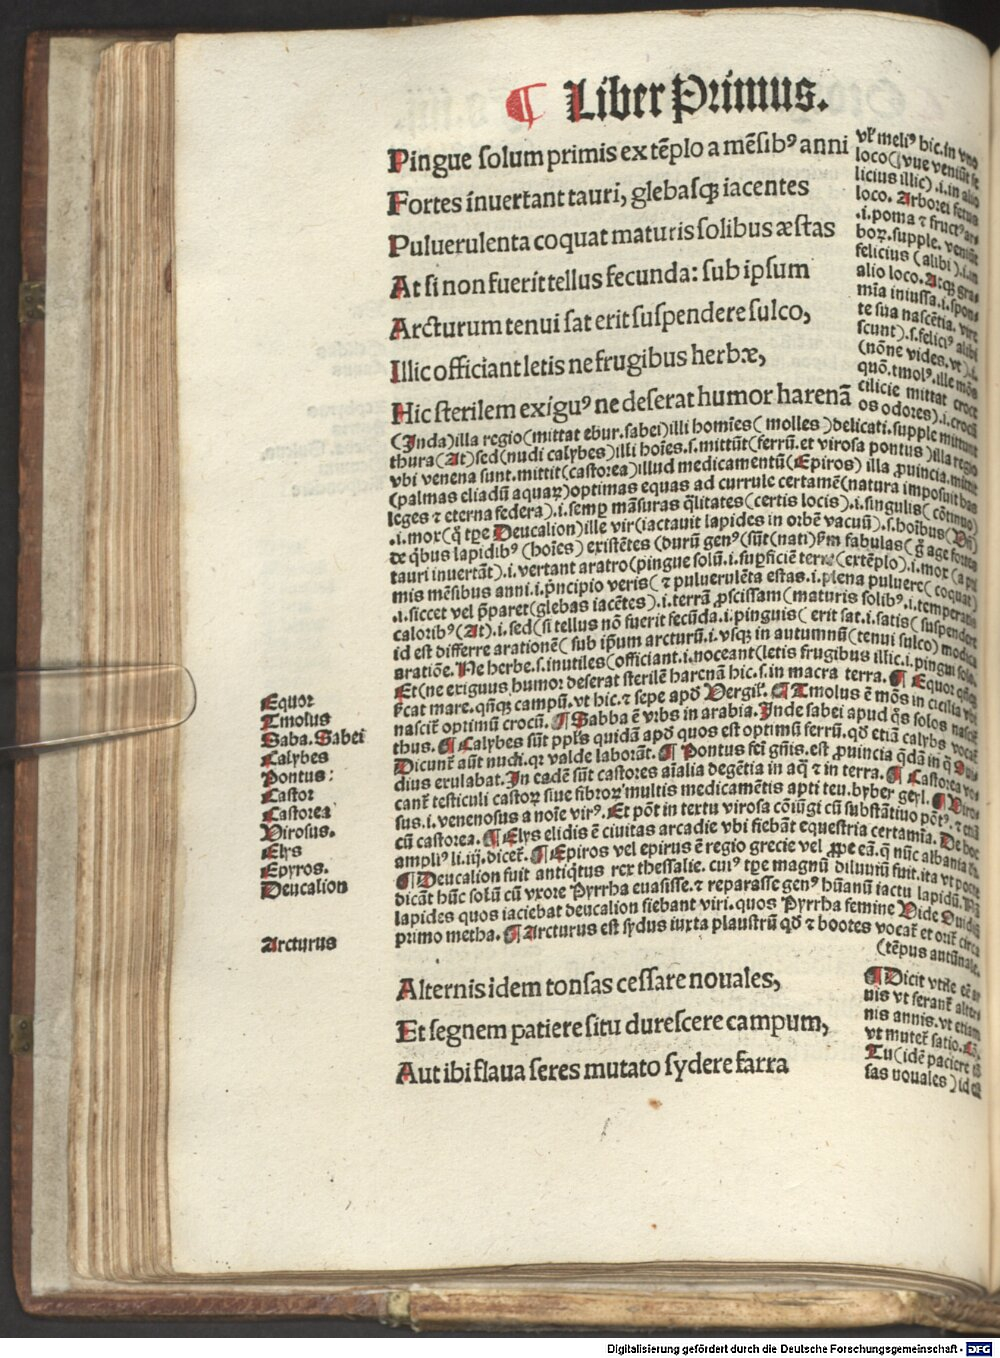 ¶ Liber Primus.
Pingue solum primis extẽplo a mẽsibꝰ anni
Fortes inuertant tauri, glebasqꝫ iacentes
Puluerulenta coquat maturis solibus æstas
At si non fuerit tellus fecunda: sub ipsum
Arcturum tenui sat erit suspendere sulco,
Illic officiant letis ne frugibus herbæ,
Hic sterilem exiguꝰ ne deserat humor harenã
vľ meliꝰ hic .in vno
loco(vue veniũt fe
licius illic).i.in alio
loco. Arborei fetus
.i.poma ⁊ fructꝰ ar
boꝝ.supple. veniũt
felicius (alibi).i.in
alio loco. Atqꝫ gra
mĩa iniussa.i.spon
te sua nascẽtia. vire
scunt).s.feliciꝰ alibi
(nõne vides.vt).i.
quõ.tmolꝰ.ille mõs
cilicie mittat croce
os odores).i.crocũ
(Inda)illa regio(mittat ebur.sabei)illi homĩes(molles)delicati.supple mittunt
thura(At)sed(nudi calybes)illi hoĩes.s.mittũt(ferrũ.et virosa pontus)illa regio
vbi venena sunt.mittit(castorea)illud medicamentũ(Epiros) illa ꝓuincia.mittit
(palmas eliadũ aquaꝝ)optimas equas ad currule certamẽ(natura imposuit has
leges ⁊ eterna federa).i.semꝑ mãsuras q̃litates(certis locis).i.singulis(cõtinuo)
.i.mox(q̃ tꝑe Deucalion)ille vir(iactauit lapides in orbẽ vacuũ).s.hoĩbus(
de q̃bus lapidibꝰ (hoĩes) existẽtes (durũ genꝰ(sũt(nati)ẜm fabulas(g̃ age fortes
tauri inuertãt).i.vertant aratro(pingue solũ.i.suꝑficiẽ terre(extẽplo).i.mox(a pri
mis mẽsibus anni.i.p̃ncipio veris(⁊ puluerulẽta estas.i.plena puluere(coquat)
.i.siccet vel p̃paret(glebas iacẽtes).i.terrã ꝓscissam(maturis solibꝰ.i.temperatis
caloribꝰ(At).i.sed(si tellus nõ fuerit fecũda.i.pinguis( erit sat.i.satis(suspendere
id est differre arationẽ( sub ip̃um arcturũ.i.vsqꝫ in autumnũ(tenui sulco) modica
aratiõe. Ne herbe.s.inutiles(officiant.i.noceant(letis frugibus illic.i.pingui solo.
Et(ne exiguus humor deserat sterilẽ harenã hic.s.in macra terra. ¶ Equor
cat mare. campũ.vt hic.⁊ sepe apđ Vergiľ. ¶ Tmolus ẽ mõs in cicilia vbi
nasciť optimũ crocũ. ¶ Sabba ẽ vrbs in arabia.Inde sabei apud q̃s solos nasciť
thus. ¶ Calybes sũt ppľs quidã apđ quos est optimũ ferrũ.qđ etiã calybs vocať
Dicunť aũt nudi.qr valde laborãt. ¶ Pontus est ꝓuincia q̃dã in q̃
dius exulabat.In eadẽ sũt castores aĩalia degẽtia in aq̃ ⁊ in terra. ¶ Castorea vo
canť testiculi castoꝝ siue fibroꝝ multis medicamẽtis apti teu.byber geyl. ¶ Viro
sus.i.venenosus a noĩe virꝰ. Et põt in textu virosa cõiũgi cũ substãtiuo
cũ castorea. ¶ Elys elidis ẽ ciuitas arcadie vbi fiebãt equestria certamĩa. De hoc
ampliꝰ li.iij.diceť. ¶ Epiros vel epirus ẽ regio grecie vel ꝓpe eã.q̃ nũc albania
¶ Deucalion fuit antiq̃tus rex thessalie. cuiꝰ tꝑe magnũ diluuiũ fuit.ita vt
dicãt hũc solũ cũ vxore Pyrrha euasisse.⁊ reparasse genꝰ hũanũ iactu lapidũ.
lapides quos iaciebat deucalion fiebant viri.quos Pyrrha femine Vide Ouidiũ
primo metha. ¶ Arcturus est sydus iuxta plaustrũ qđ ⁊ bootes vocať et oriť circa
(tẽpus autũnale.
Equor
Tmolus
Saba. Sabei
Calybes
Pontus:
Castor
Castorea
Virosus.
Elys
Epyros.
Deucalion
Arcturus
Alternis idem tonsas cessare nouales,
Et segnem patiere situ durescere campum,
Aut ibi flaua seres mutato sydere farra
¶ Dicit vtile
nis vt seranť alter
nis annis.vt etiam
vt muteť satio.
Tu(idẽ paciere
sas nouales)id est
Digitalisierung gefördert durch die Deutsche Forschungsgemeinschaft - DFG